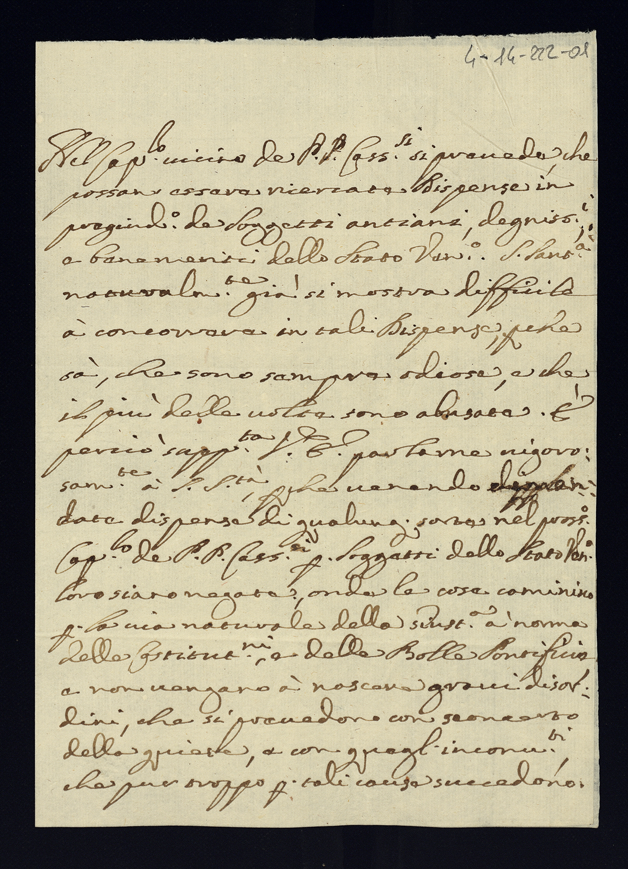 4-14-222-01
Nel Cap.lo vicino de P.P. Cass.si si prevede, che
possano essere ricercate Dispense in
pregiud.o de Soggetti antiani, degniss.i,
e benemeriti dello Stato Ven.o. S. Sant.à
naturalm.te già si mostra difficile
à concorrere in tali Dispense, p.che
sà, che sono sempre odiose, e che
il più delle volte sono abusate. È
perciò supp.ta V. E. parlarne rigoro:
sam.te à S. S.tà, p.che venendo
date dispense di qualunq. sorte nel pross.o
Cap.lo de P.P. Cass.si p. Soggetti dello Stato Ven.o
loro siano negate, onde le cose caminino
p. la via naturale della Giust.a à norma
delle Costitut.ni, e delle Bolle Pontificie
e non vengano à nascere gravi disor:
dini, che si prevedono con sconcerto
della quiete, e con quegl'inconv.ti
che pur troppo p. tali cause succedono.